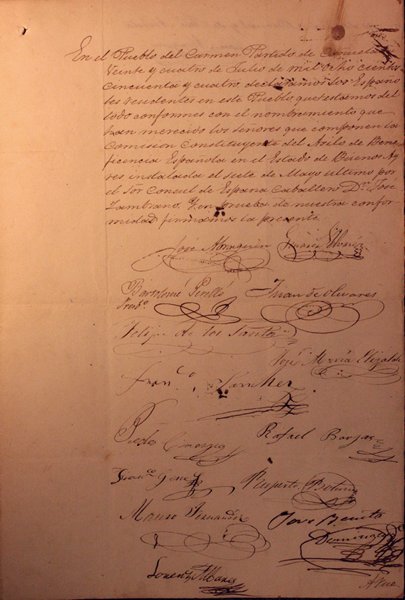 En el Pueblo del Carmen Partido de
Veinte y cuatro de Julio de mil ocho cientos
cincuenta y cuatro declaramos los Españo
les residentes en este Pueblo que estamos del
todo conformes con el nombramiento que
han merecido los Señores que componen la
Comision Constituyente del Asilo de Bene
ficencia Española en el Estado de Buenos Ay
res instalada el siete de Mayo ultimo por
el Sor Consul de España Caballero Dn Jose
Zambrano, y en prueba de nuestra confor
midad firmamos la presente
José
Bartolomé Juan de Olivares
Felipe de los Santos
José María
Franco Sanchez
Pedro Rafael
Ruperto
Mauro Fernandez Jose Benito
Dominguez
Lorenzo